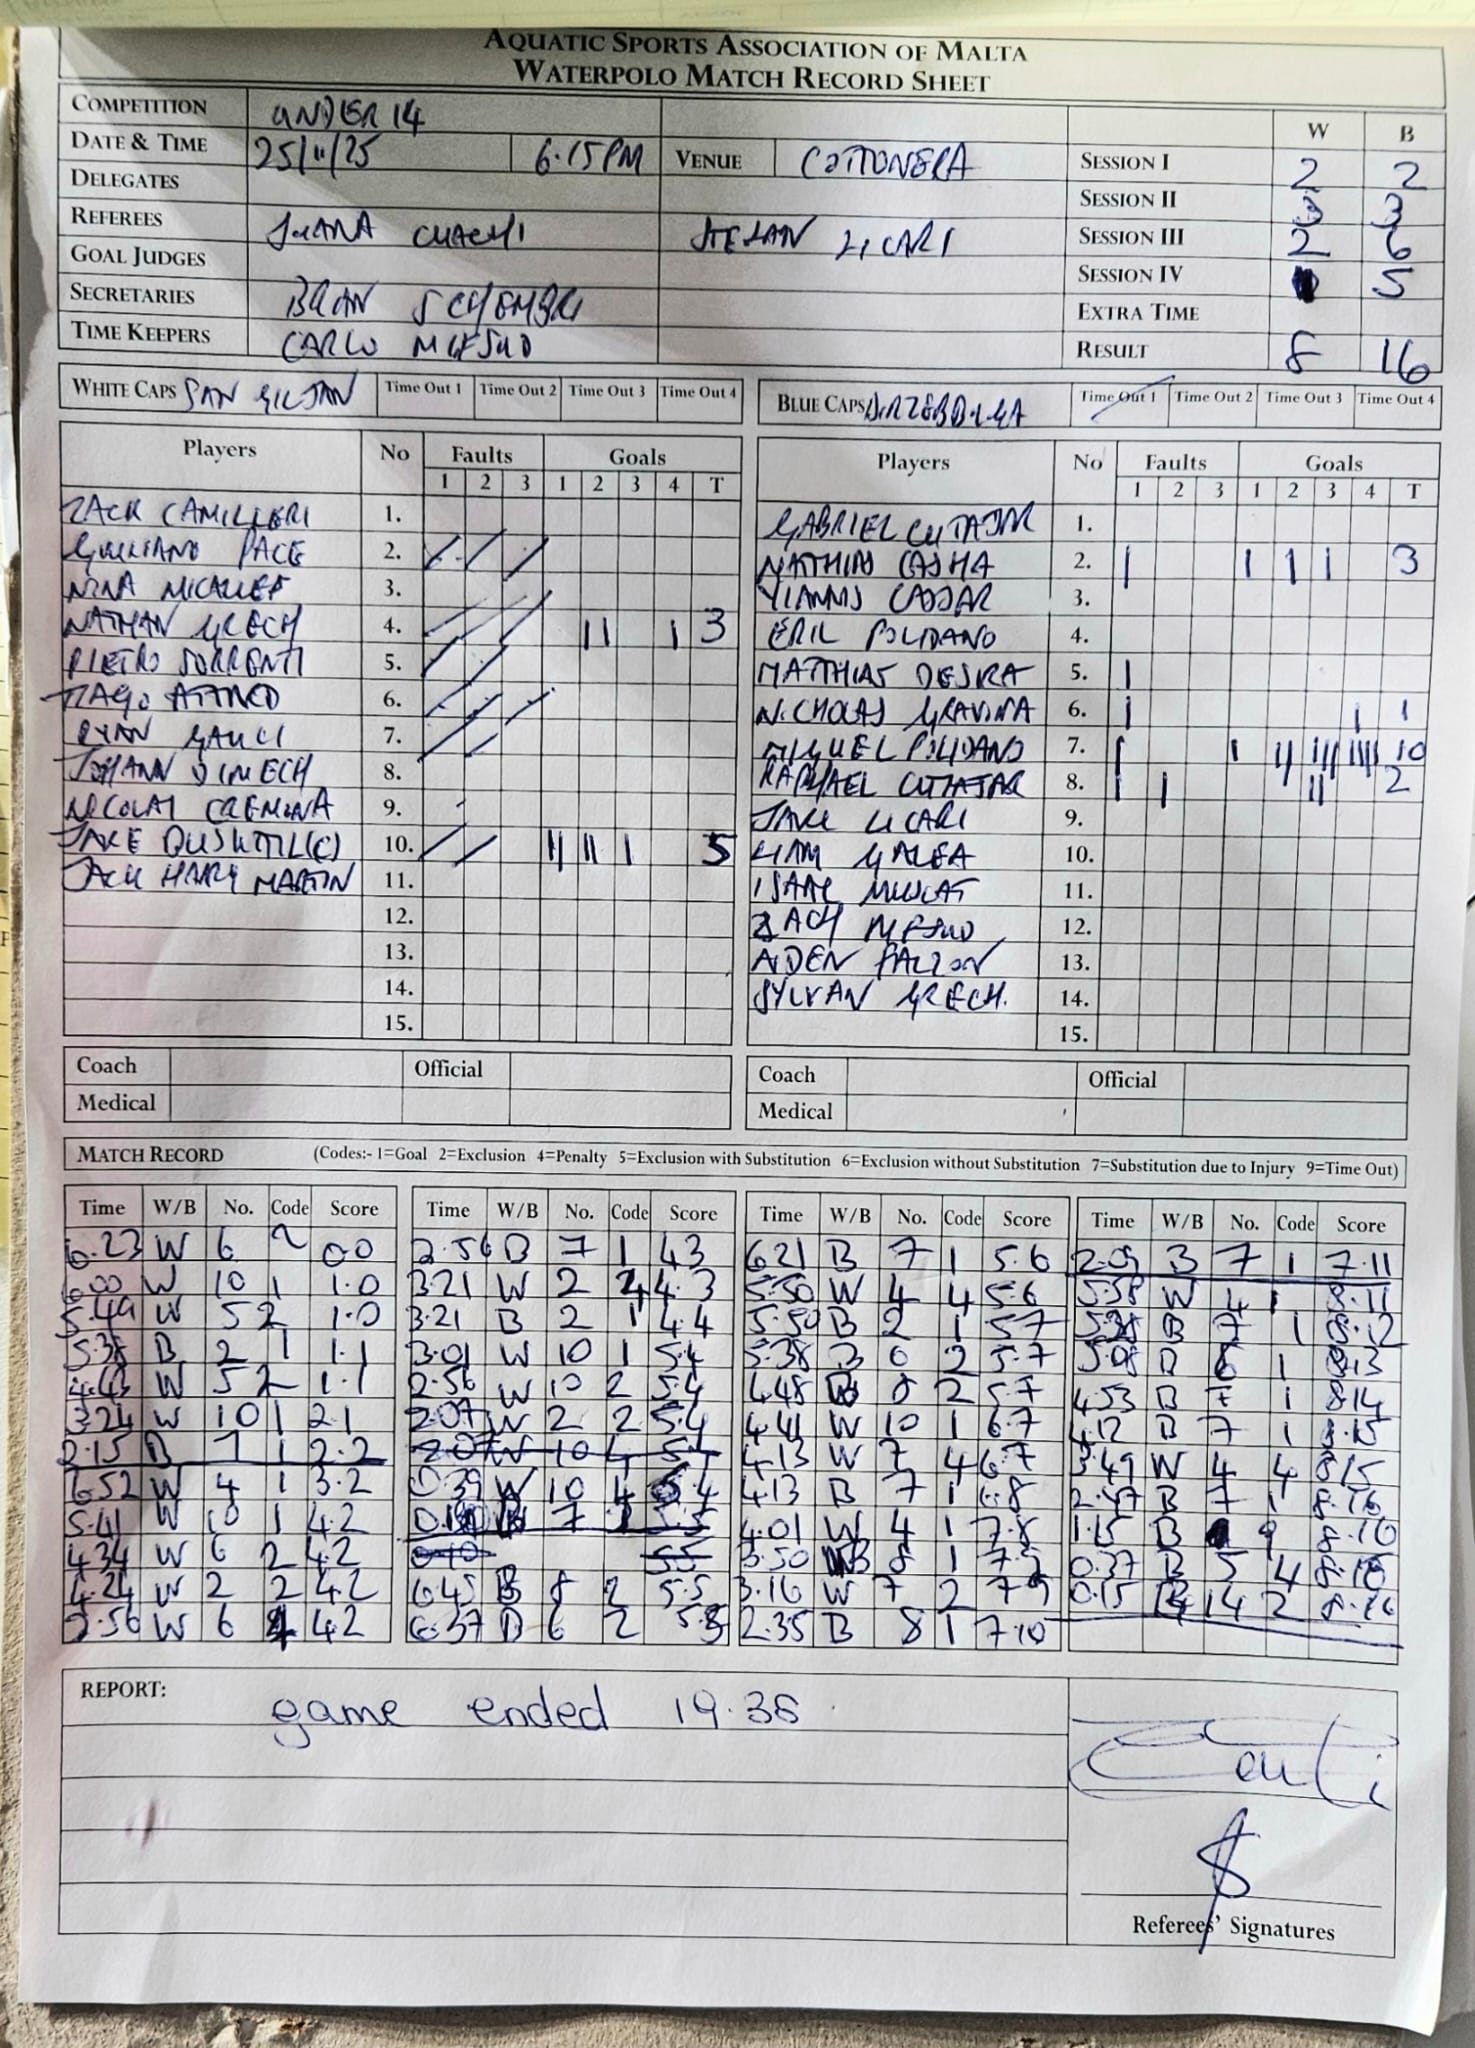 AQUATIC SPORTS ASSOCIATION OF MALTA
WATERPOLO MATCH RECORD SHEET
COMPETITION UNDER 14 W B
DATE & TIME 25/11/25 6.15PM VENUE COTTONERA SESSION I 2 2
DELEGATES SESSION II 3 3
REFEREES STEFAN LICARI SESSION III 2 6
GOAL JUDGES SESSION IV 5
SECRETARIES BRIAN SCHEMBRI EXTRA TIME
TIME KEEPERS CARLO MIFSUD RESULT 8 16
WHITE CAPS SAN GILJAN Time Out 1 Time Out 2 Time Out 3 Time Out 4
BLUE CAPS BIRZEBBUGA Time Out 1 Time Out 2 Time Out 3 Time Out 4
Players No Faults Goals
1 2 3 1 2 3 4 T
ZACK CAMILLERI 1.
GIULIANO PACE 2. / / /
NINA MICALLEF 3.
NATHAN GRECH 4. / / / II I 3
PIETRO SORRENTI 5. / /
TIAGO ATTARD 6. / / /
RYAN GAUCI 7. / /
JOHANN DIMECH 8.
NICOLAI CREMONA 9.
JAKE BUSUTTIL(C) 10. / / II II I 5
JACK HARRY MARTIN 11.
12.
13.
14.
15.
Players No Faults Goals
1 2 3 1 2 3 4 T
GABRIEL CUTAJAR 1.
MATTHIAS CASHA 2. I I I I 3
YIANNIS CASSAR 3.
ERIL POLIDANO 4.
MATTHIAS DESIRA 5. I
NICHOLAS GRAVINA 6. I I 1
MIGUEL POLIDANO 7. I I II III IIII 10
RAPHAEL CUTAJAR 8. I I II 2
JAKE LICARI 9.
LIAM GALEA 10.
ISAAC MUSCAT 11.
ZACH MIFSUD 12.
AIDEN FALZON 13.
SYLVAN GRECH. 14.
15.
Coach Official
Medical
Coach Official
Medical
MATCH RECORD (Codes:- 1=Goal 2=Exclusion 4=Penalty 5=Exclusion with Substitution 6=Exclusion without Substitution 7=Substitution due to Injury 9=Time Out)
Time W/B No. Code Score
6.23 W 6 2 0.0
6.00 W 10 1 1.0
5.49 W 5 2 1.0
5.38 B 2 1 1.1
4.43 W 5 2 1.1
3.24 W 10 1 2.1
2.15 B 7 1 2.2
6.52 W 4 1 3.2
5.41 W 10 1 4.2
4.34 W 6 2 4.2
4.24 W 2 2 4.2
3.56 W 6 4 4.2
Time W/B No. Code Score
2.56 B 7 1 4.3
3.21 W 2 4 4.3
3.21 B 2 1 4.4
3.01 W 10 1 5.4
2.56 W 10 2 5.4
2.07 W 2 2 5.4
2.07 W 10 4 5.4
0.39 W 10 4 5.4
7 1 5.5
0.10 5.5
6.45 B 8 2 5.5
6.37 B 6 2 5.5
Time W/B No. Code Score
6.21 B 7 1 5.6
5.50 W 4 4 5.6
5.50 B 2 1 5.7
5.38 B 6 2 5.7
4.48 B 8 2 5.7
4.41 W 10 1 6.7
4.13 W 7 4 6.7
4.13 B 7 1 6.8
4.01 W 4 1 7.8
3.50 B 8 1 7.9
3.16 W 7 2 7.9
2.35 B 8 1 7.10
Time W/B No. Code Score
2.09 B 7 1 7.11
5.58 W 4 1 8.11
5.28 B 7 1 8.12
5.08 B 6 1 8.13
4.53 B 7 1 8.14
4.12 B 7 1 8.15
3.49 W 4 4 8.15
2.47 B 7 1 8.16
1.15 B 9 8.16
0.37 B 5 4 8.16
0.15 B 14 2 8.16
REPORT: game ended 19.36
Referees' Signatures